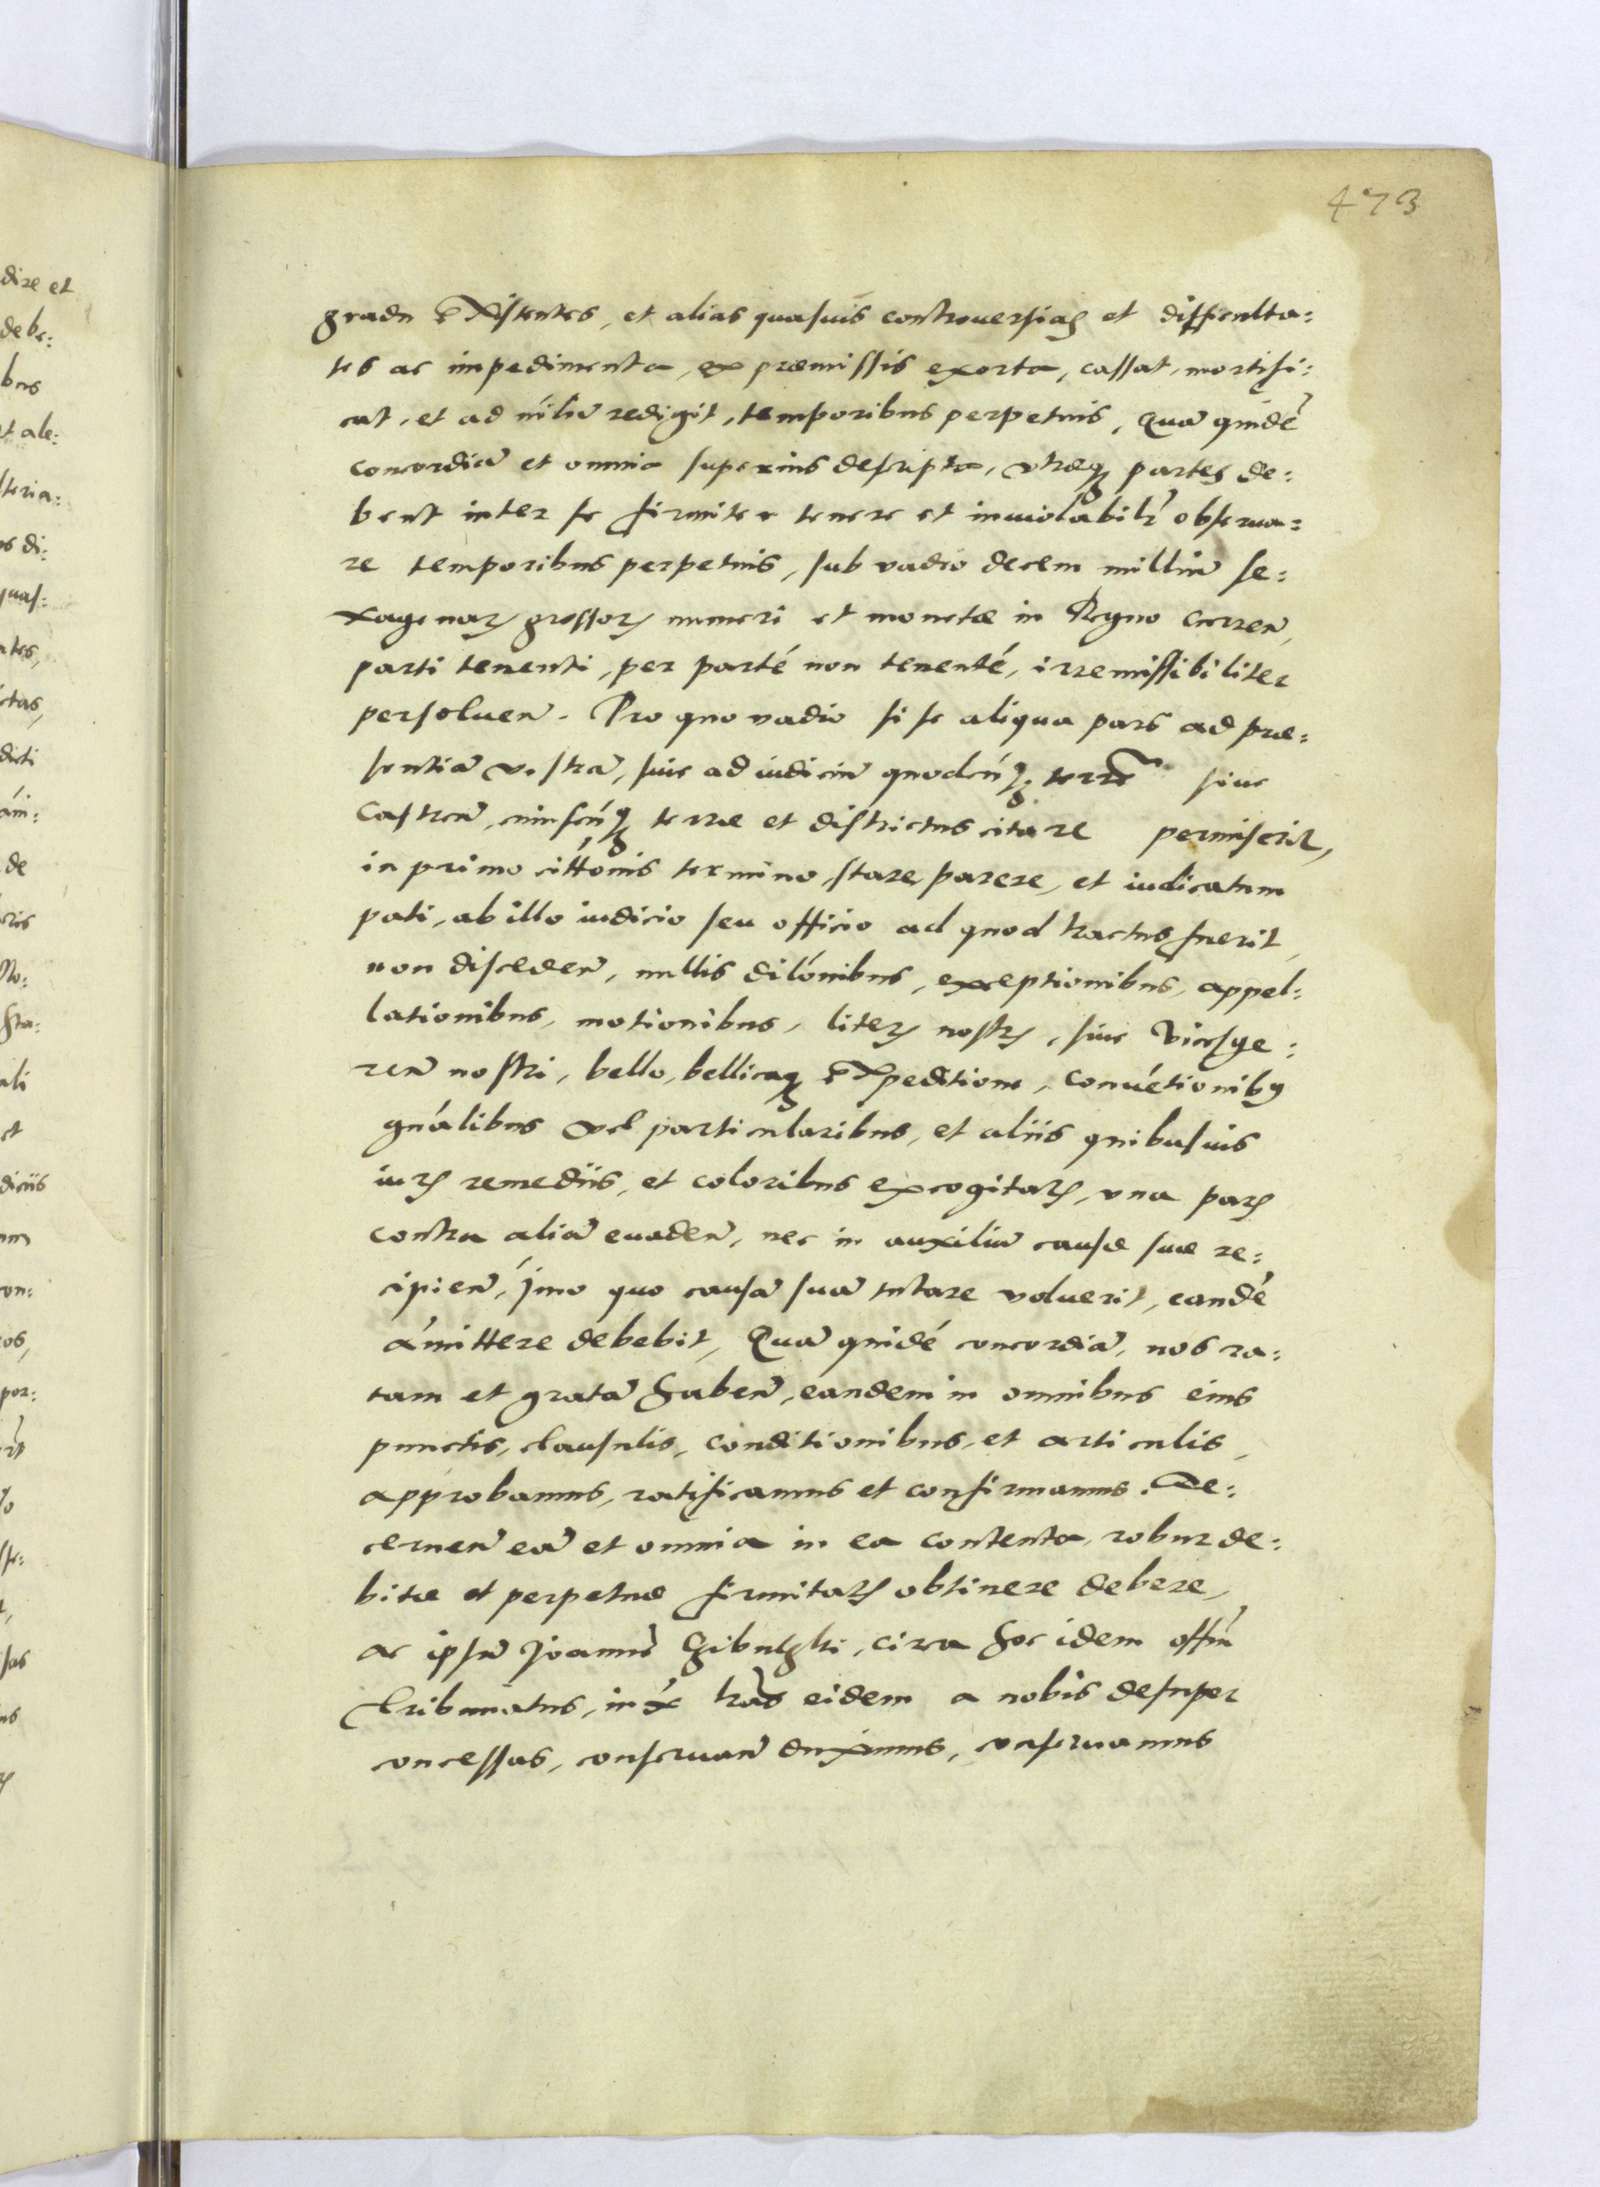 473
dire et
debe:
bus
et ale:
di:
quas:
ntes,
dicti
de
et
diciis
con:
por:
gradu existentes, et alias quasuis controuersias et difficulta:
tes ac impedimenta, ex præmissis exorta, cassat, mortifi:
cat, et ad nihilũ redigit, temporibus perpetuis, Quã quidẽ
concordiã et omnia superius descripta, vtræq; partes de:
bent inter se firmiter tenere et inuiolabilr̃ obserua:
re temporibus perpetuis, sub vadio decem milliũ se:
xagenarꝝ grossorꝝ numeri et monetæ in Regno curreñ,
parti tenenti, per partẽ non tenentẽ, irremissibiliter
persolueñ. Pro quo vadio si se aliqua pars ad præ:
sentiã vestrã, siue ad iudiciũ quodcũq; terrẽ siue
Castreñ, cuiuscũq; terræ et districtus citare permiserit,
in primo citt̃onis termino, stare, parere, et iudicatum
pati, ab illo iudicio seu officio ad quod tractus fuerit,
non discedeñ, nullis dilõnibus, exceptionibus, appel:
lationibus, motionibus, literꝭ nostrꝭ, siue Vicesge:
reñ nostri, bello, bellicaq; expeditione, conuẽtionibꝰ
gñalibus vel particularibus, et aliis quibusuis
iurꝭ remediis, et coloribus excogitatꝭ, vna pars
contra aliã euadeñ, nec in auxiliũ causæ suæ re:
cipieñ, Jmo quo causã suã tutare voluerit, eandẽ
amittere debebit, Quã quidẽ concordiã, nos ra:
tam et gratã habeñ, eandem in omnibus eius
punctis, clausulis, conditionibus, et articulis,
approbamus, ratificamus et confirmamus. De:
cerneñ eã et omnia in ea contenta, robur de:
bitæ et perpetuæ firmitatꝭ obtinere debere,
ac ipsũ Joannẽ Gibulski, circa hoc idem offm̃
Tribunatus, iux̃ lr̃as eidem a nobis desuper
concessas, conseruañ duximus, cõseruamus